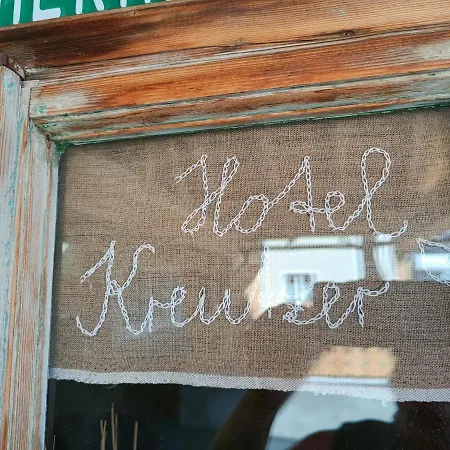 Hotel
Kreuzer